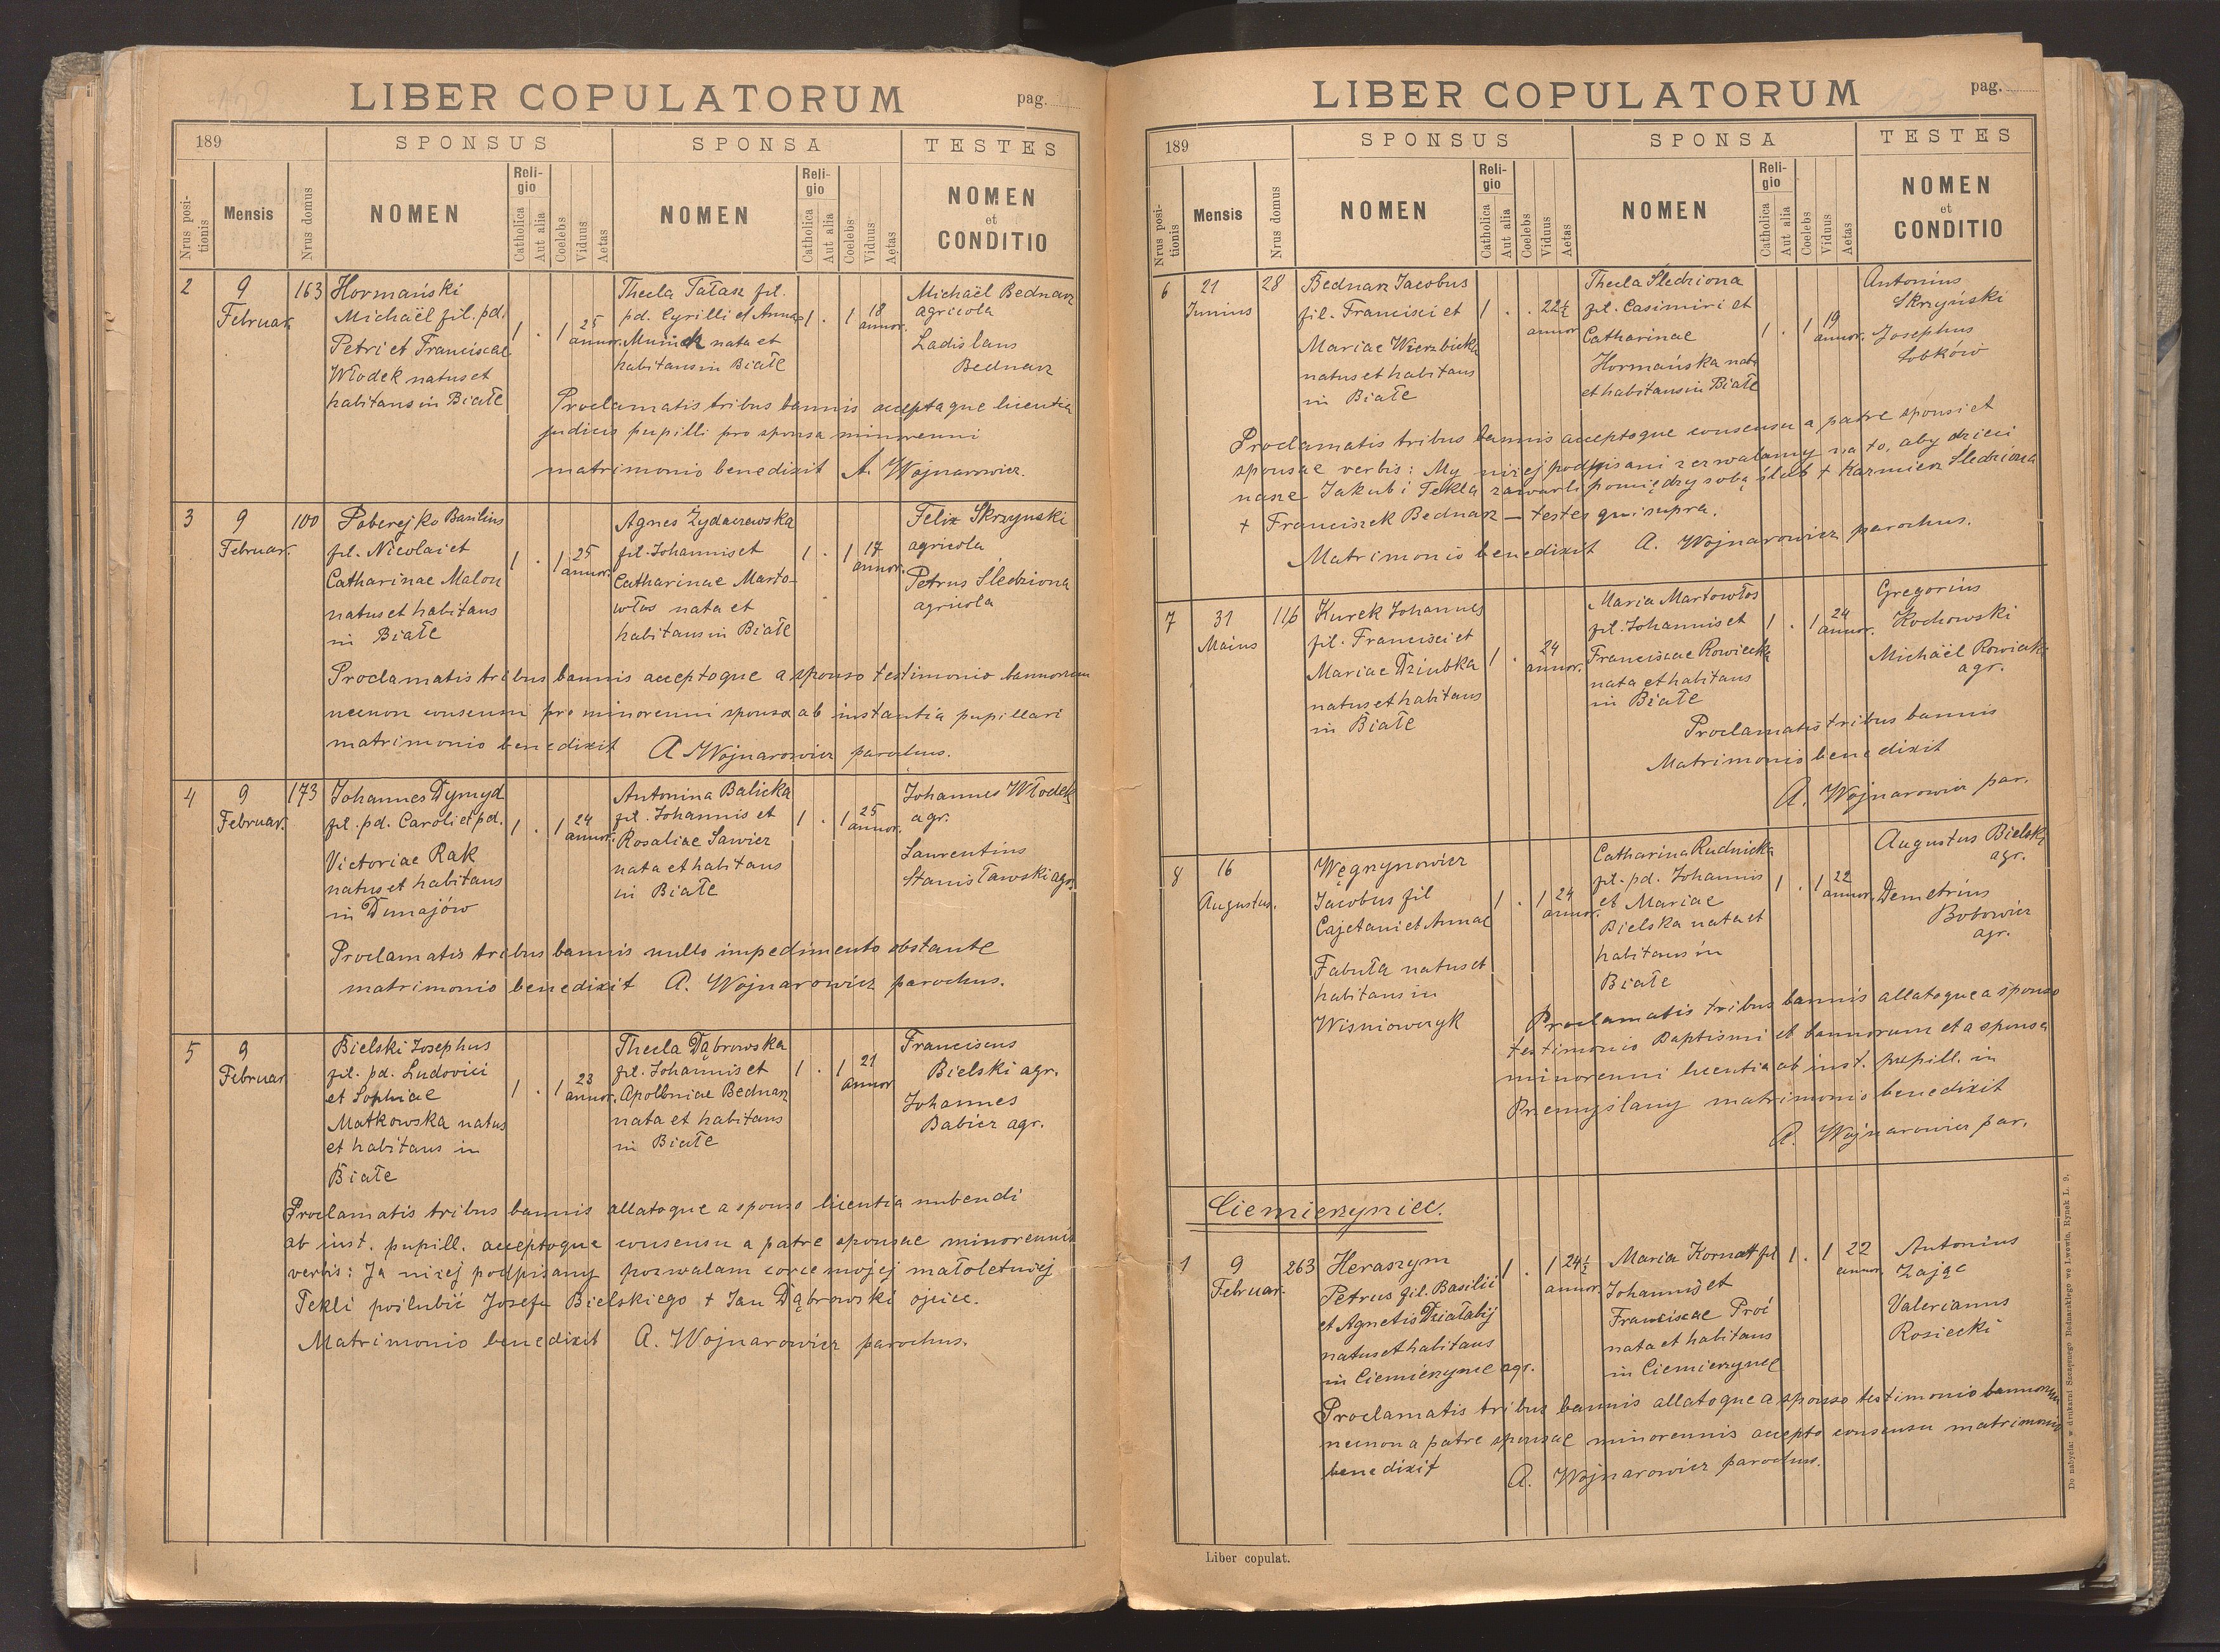 LIBER COPULATORUM
pag.
189
SPONSUS
SPONSA
TESTES
Nrus positionis
Mensis
Nrus domus
NOMEN
Religio
Catholica
Aut alia
Coelebs
Viduus
Aetas
NOMEN
Religio
Catholica
Aut alia
Coelebs
Viduus
Aetas
NOMEN
et
CONDITIO
2
9
Februar.
163
Hormański
Michaël fil. pd.
Petri et Franciscae
Włodek natus et
habitans in Białe
1 . 1 25
annor.
Thecla Tatasz fil.
pd. Cyrilli et Annae
nata et
habitans in Białe
1 . 1 18
annor.
Michaël Bednarz
agricola
Ladislaus
Bednarz
Proclamatis tribus bannis acceptaque licentia
judicis pupilli pro sponsa minorenni
matrimonio benedixit A. Wojnarowicz.
3
9
Februar.
100
Poberejko Basilius
fil. Nicolai et
Catharinae Malon
natus et habitans
in Białe
1 . 1 25
annor.
Agnes Żydaczewska
fil. Johannis et
Catharinae Marto-
włos nata et
habitans in Białe
1 . 1 17
annor.
Felix Skrzynski
agricola
Petrus Sledziona
agricola
Proclamatis tribus bannis acceptoque a sponso testimonio bannorum
necnon consensu pro minorenni sponsa ab instantia pupillari
matrimonio benedixit A Wojnarowicz parochus.
4
9
Februar.
173
Johannes Dymyd
fil. pd. Caroli et pd.
Victoriae Rak
natus et habitans
in Dunajów
1 . 1 24
annor.
Antonina Balicka
fil. Johannis et
Rosaliae Sawicz
nata et habitans
in Białe
1 . 1 25
annor.
Johannes Włodek
agr.
Laurentius
Stanisławski agr.
Proclamatis tribus bannis nullo impedimento obstante
matrimonio benedixit A. Wojnarowicz parochus.
5
9
Februar
Bielski Josephus
fil. pd. Ludovici
et Sophiae
Matkowska natus
et habitans in
Białe
1 . 1 23
annor.
Thecla Dąbrowska
fil. Johannis et
Apolloniae Bednarz
nata et habitans
in Białe
1 . 1 21
annor
Franciscus
Bielski agr.
Johannes
Babicz agr.
Proclamatis tribus bannis allatoque a sponso licentia nubendi
ab inst. pupill. acceptoque consensu a patre sponsae minorennis
verbis: Ja niżej podpisany pozwalam corce mojej małoletniej
Tekli poślubić Josefa Bielskiego + Jan Dąbrowski ojciec.
Matrimonio benedixit A. Wojnarowicz parochus.
LIBER COPULATORUM
pag.
189
SPONSUS
SPONSA
TESTES
Nrus positionis
Mensis
Nrus domus
NOMEN
Religio
Catholica
Aut alia
Coelebs
Viduus
Aetas
NOMEN
Religio
Catholica
Aut alia
Coelebs
Viduus
Aetas
NOMEN
et
CONDITIO
6
21
Junius
28
Bednarz Jacobus
fil. Francisci et
Mariae Wierzbicka
natus et habitans
in Białe
1 . . 22½
annor
Thecla Sledziona
fil. Casimiri et
Catharinae
Hormańska nata
et habitans in Białe
1 . 1 19
annor.
Antonius
Skrzyński
Josephus
Łobków
Proclamatis tribus bannis acceptoque consensu a patre sponsi et
sponsae verbis: My niżej podpisani zezwalamy na to, aby dzieci
nasze Jakub i Tekla zawarli pomiędzy sobą ślub + Kazmierz Sledziona
+ Franciszek Bednarz — testes qui supra.
Matrimonio benedixit A. Wojnarowicz parochus.
7
31
Maius
116
Kurek Johannes
fil. Francisci et
Mariae Dziubka
natus et habitans
in Białe
1 . 24
annor.
Maria Martowłos
fil. Johannis et
Franciscae Rowicka
nata et habitans
in Białe
1 . 1 24
annor.
Gregorius
Kochowski
Michaël Rowicki
agr.
Proclamatis tribus bannis
Matrimonio benedixit
A. Wojnarowicz par.
8
16
Augustus.
Węgrynowicz
Jacobus fil
Cajetani et Annae
Fabuła natus et
habitans in
Wisniowczyk
1 . 1 24
annor.
Catharina Rudnicka
fil. pd. Johannis
et Mariae
Bielska nata et
habitans in
Białe
1 . 1 22
annor.
Augustus Bielski
agr.
Demetrius
Bobowicz
agr.
Proclamatis tribus bannis allatoque a sponso
testimonio Baptismi et bannorum et a sponsa
minorenni licentia ab inst. pupill. in
Przemyślany matrimonio benedixit
A. Wojnarowicz par.
Ciemierzyniec.
1
9
Februar.
263
Heraszym
Petrus fil. Basilii
et Agnetis Działabij
natus et habitans
in Ciemierzynce agr.
1 . 1 24½
annor.
Maria Kornatt fil
Johannis et
Franciscae Proć
nata et habitans
in Ciemierzynce
1 . 1 22
annor.
Antonius
Zając
Valerianus
Rosiecki
Proclamatis tribus bannis allatoque a sponso testimonio bannorum
necnon a patre sponsae minorennis accepto consensu matrimonio
benedixit A. Wojnarowicz parochus.
Liber copulat.
Do nabycia: w drukarni Szczęsnego Bednarskiego we Lwowie, Rynek L. 9.